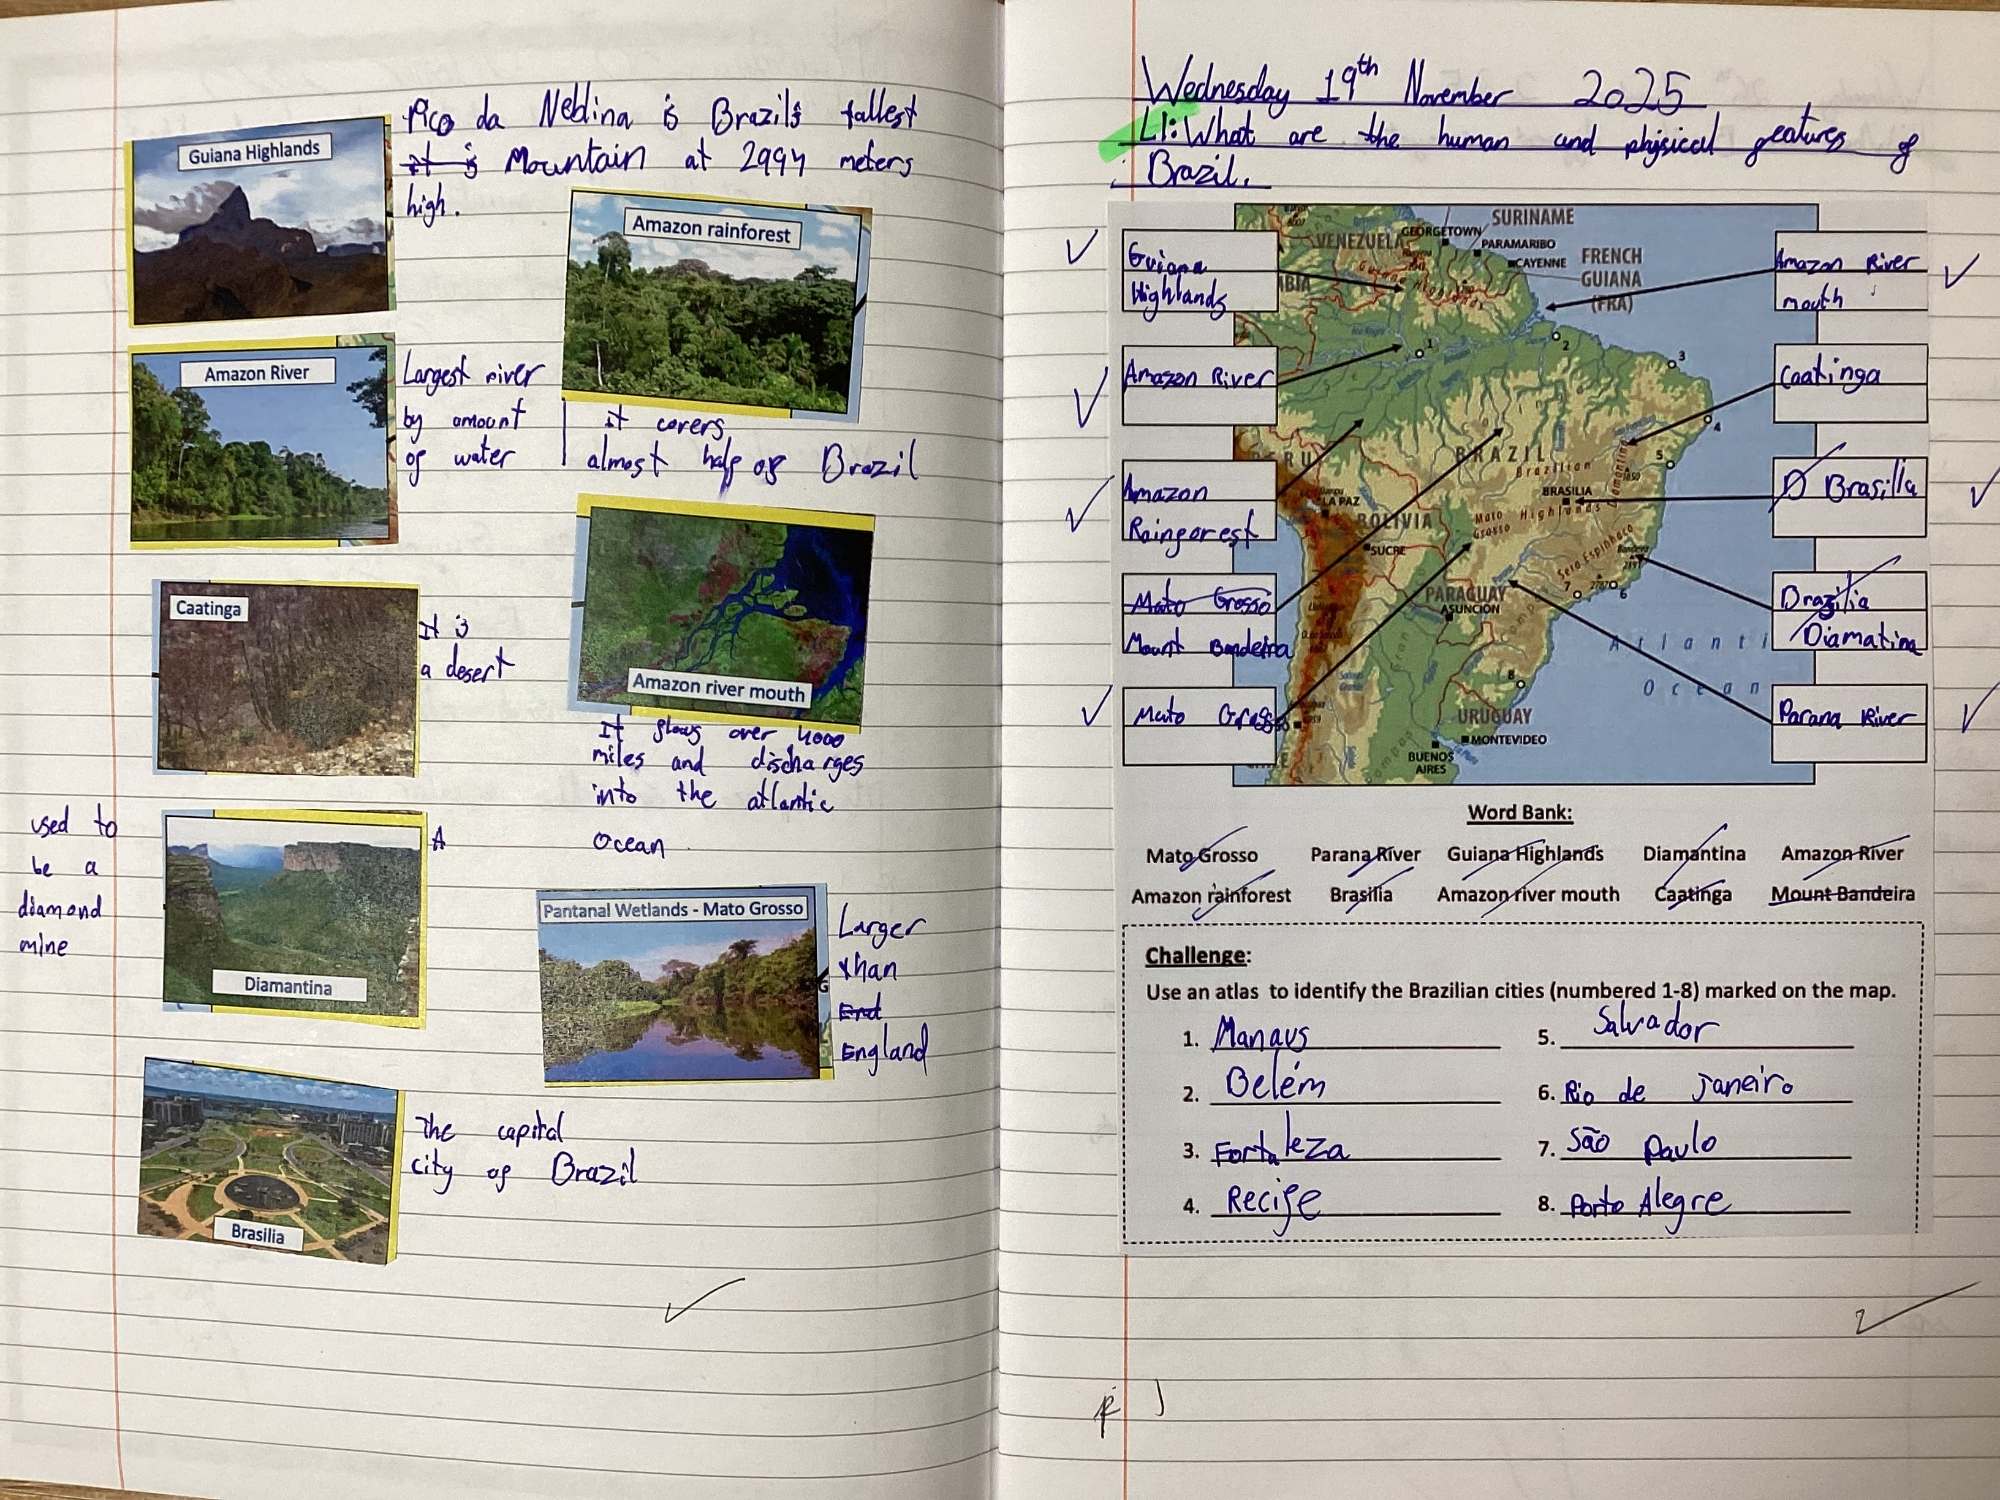 Pico da Neblina is Brazil's tallest
it is Mountain at 2994 meters
high.
Guiana Highlands
Amazon rainforest
Amazon River
Largest river
by amount
of water
it covers
almost half of Brazil
Caatinga
It is
a desert
Amazon river mouth
It flows over 4000
miles and discharges
into the atlantic
Ocean
used to
be a
diamond
mine
A
Diamantina
Pantanal Wetlands - Mato Grosso
Larger
than
End
England
G
Brasilia
The capital
city of Brazil
Wednesday 19th November 2025
LI: What are the human and physical features of
Brazil.
Guiana
Highlands
Amazon River
Amazon
Rainforest
Mato Grosso
Mount Bandeira
Mato Grosso
Amazon River
mouth
Caatinga
D Brasilia
Drazilia
Diamatina
Parana River
SURINAME
VENEZUELA
GEORGETOWN
PARAMARIBO
CAYENNE
FRENCH
GUIANA
(FRA)
Guiana Highlands
1
2
3
4
5
BRAZIL
Brazilian
Highlands
BRASILIA
Diamantina
LA PAZ
BOLIVIA
Mato
Grosso
SUCRE
PARAGUAY
ASUNCIÓN
7
6
8
Atlanti
Ocean
URUGUAY
MONTEVIDEO
BUENOS
AIRES
Word Bank:
Mato Grosso Parana River Guiana Highlands Diamantina Amazon River
Amazon rainforest Brasilia Amazon river mouth Caatinga Mount Bandeira
Challenge:
Use an atlas to identify the Brazilian cities (numbered 1-8) marked on the map.
1. Manaus
2. Belém
3. Fortaleza
4. Recife
5. Salvador
6. Rio de Janeiro
7. São Paulo
8. Porto Alegre